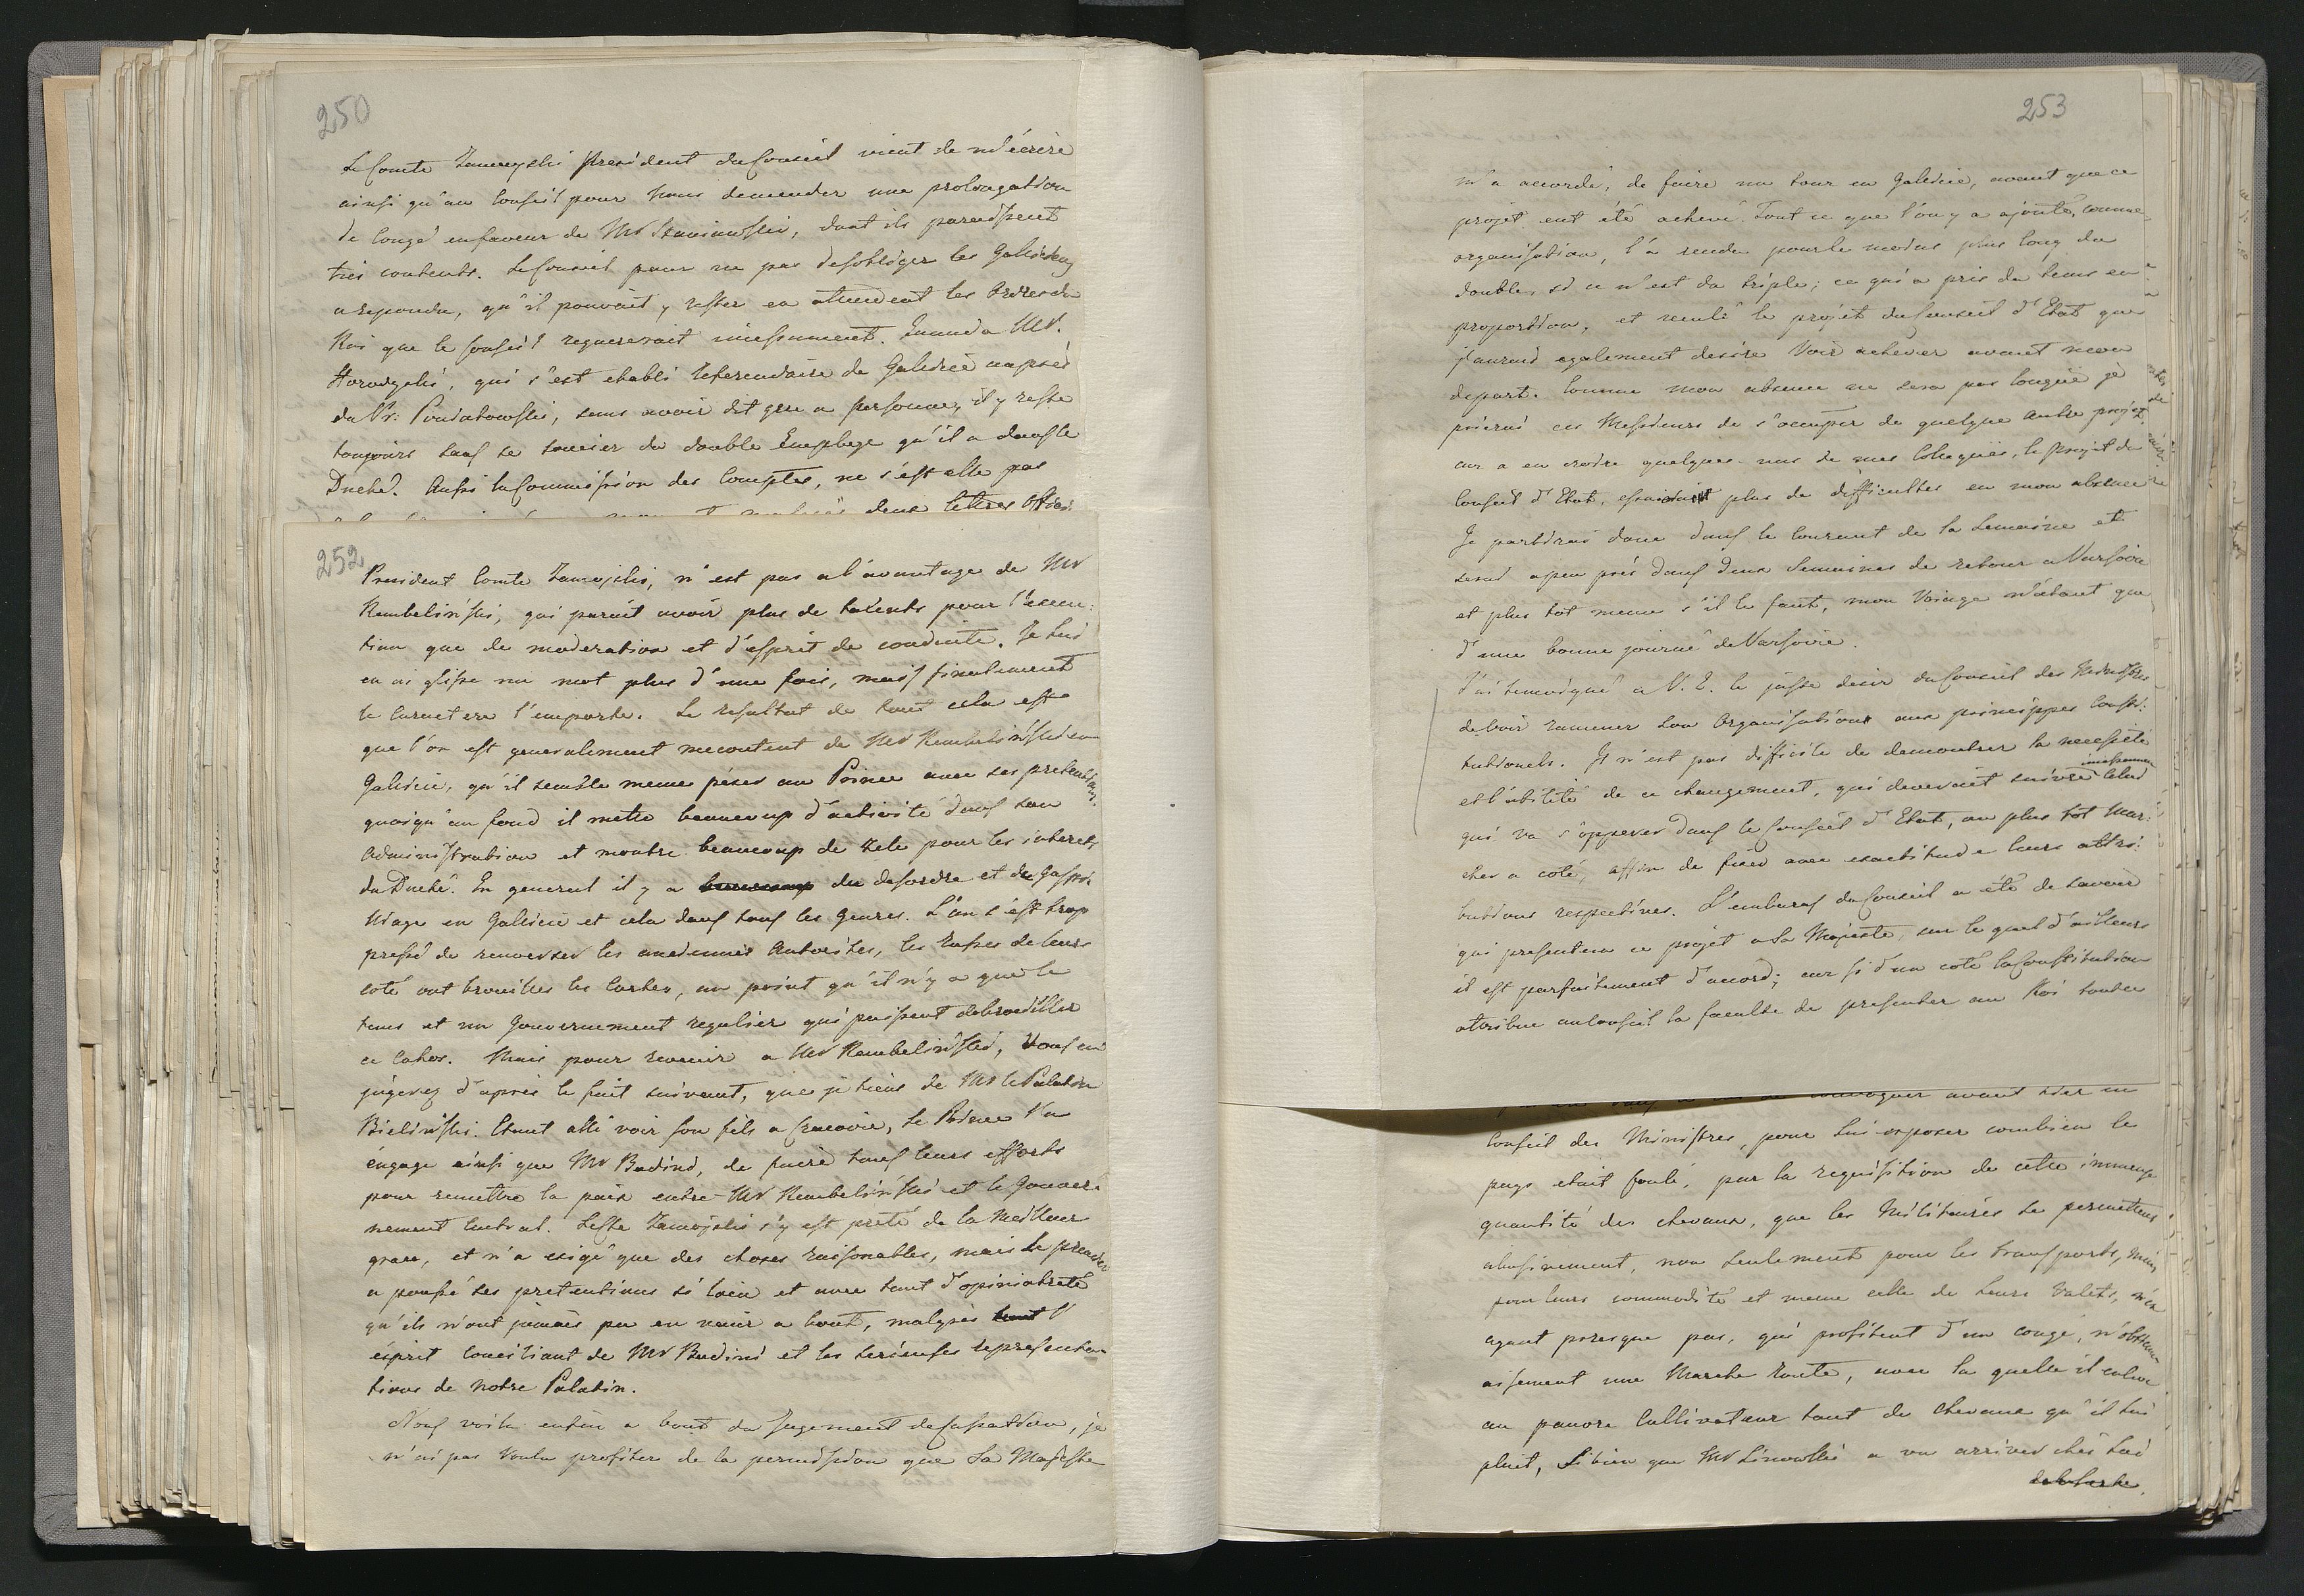 250
Le Comte Zamoyski President du Conseil vient de m'écrire
ainsi qu'au Conseil pour nous demender une prolongation
de congé en faveur de Mr dont ils paroissent
très contents. Le Conseil pour ne pas desobliger les Galiciens
a repondu, qu'il pouvoit y rester en attendent les Ordres du
Roi que le Conseil requererait incessament. Quand a Mr.
Horodyski, qui s'est etabli Referendaire de Galicie auprès
du Pr: Poniatowski, sans avoir dit gare a personne, il y reste
toujours sans se soucier du double Employe qu'il a dans le
Duché. Aussi la Commission des Comptes, ne s'est elle pas
deux lettres
252
President Comte Zamojski, n'est pas a l'avantage de Mr
Rembelinski, qui paroit avoir plus de talents pour l'execu:
tion que de moderation et d'esprit de conduite. Je lui
en ai glissé un mot plus d'une fois, mais finalement
le caractere l'emporte. Le resultat de tout cela est
que l'on est generalement mecontent de Mr Rembelinski en
Galicie, qu'il semble meme péser au Prince avec ses pretentions,
quoiqu'au fond il mette beaucoup d'activité dans son
Administration et montre beaucoup de zele pour les interets
du Duché. En general il y a beaucoup du desordre et du Gaspi:
liage en Gallicie et cela dans tous les genres. L'on s'est trop
pressé de renverser les anciennes Autorites, les Russes de leurs
coté ont brouilles les cartes, au point qu'il n'y a que le
tems et un Gouvernement regulier qui puissent debrouiller
ce cahos. Mais pour revenir a Mr Rembelinski, Vous en
jugerez d'après le fait suivant, que je tiens de Mr le Palatin
Bielinski. Etant allé voir son fils a Cracovie, le Prince l'a
engagé ainsi que Mr Badini, de faire tous leurs efforts
pour remettre la paix entre Mr Rembelinski et le Gouver:
nement Central. Le Cte Zamojski s'y est preté de la Meilleur
grace, et n'a exigé que des choses raisonables, mais le premier
a poussé ses pretentions si loin et avec tant d'opiniatreté
qu'ils n'ont jamais pu en venir a bout, malgrés tout l'
esprit conciliant de Mr Badini et les serieuses representa:
tions de notre Palatin.
Nous voila enfin a bout du Jugement de Cassation, je
n'ai pas voulu profiter de la permission que Sa Majesté
253
m'a accordé, de faire un tour en Galicie, avant que ce
projet eut été achevé. Tout ce que l'on y a ajouté, comme
organisation, l'a rendu pour le moins plus long du
double, si ce n'est du triple; ce qui a pris du tems en
proportion, et reculé le projet du Conseil d'Etat que
j'aurais egalement desire Voir achever avant mon
depart. Comme mon absence ne sera pas longue je
prierai ces Messieurs de s'occuper de quelque autre projet,
car a en croire quelques-uns de mes Collegues, le projet de
Conseil d'Etat, plus de difficultés en mon absence
Je partirai donc dans le courant de la Semaine et
serai apeu près dans deux Semaines de retour a Varsovie
et plus tot meme s'il le faut, mon Voiage n'étant que
d'une bonne journé de Varsovie.
J'ai temoigné a V. E. le juste desir du Conseil des Ministres
de voir ramener son Organisation aux principes Consti:
tutionels. Il n'est pas difficile de demontrer la necessité
et l'utilité de ce changement, qui devroit suivre incessament celui
qui va s'opperer dans le Conseil d'Etat, ou plus tot mar:
cher a coté, affin de fixer avec exactitude leurs attri:
butions respectives. L'embaras du Conseil a été de savoir
qui presentera ce projet a Sa Majesté, sur le quel d'ailleurs
il est parfaitement d'acord; car si d'un coté la Constitution
attribue au Conseil la faculté de presenter au Roi toutes
convoquer avant hier un
Conseil des Ministres, pour lui exposer combien le
pays etait foulé, par la requisition de cette immense
quantité des chevaux, que les Militaires se permettent
abusivement, non seulement pour les transports, mais
pour leurs commodité et meme celle de leurs Valets, n'en
ayant presque pas, qui profitent d'un congé, n'obtienne
aisement une Marche route, avec la quelle il enleve
au pauvre Cultivateur tant de chevaux qu'il lui
plait, Si bien que Mr Linowski a vu arriver chés lui